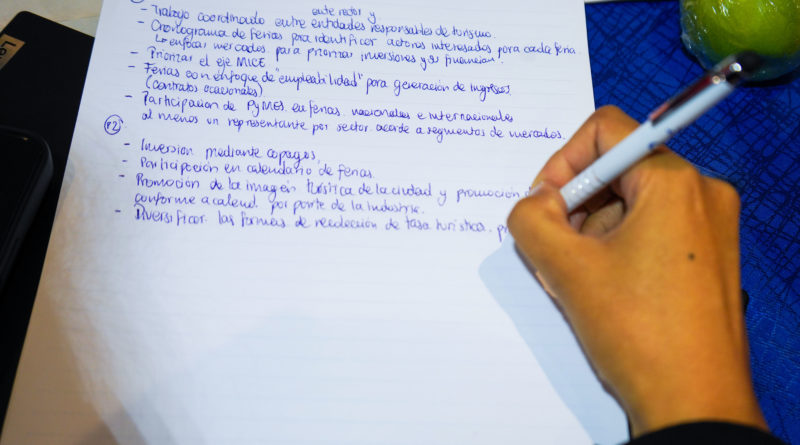 ente rector y
- Trabajo coordinado entre entidades responsables de turismo.
- Cronograma de ferias para identificar actores interesados para cada feria.
↳ enfocar mercados. para priorizar inversiones y su
- Priorizar el eje MICE
- Ferias con enfoque de "empleabilidad" para generación de ingresos
(contratos ocasionales)
- Participación de PyMES en ferias. nacionales e internacionales
al menos un representante por sector acorde a segmentos de mercados.
P2)
- Inversión mediante copagos,
- Participación en calendario de ferias.
- Promoción de la imagen turística de la ciudad y promoción
conforme a calend. por parte de la industria.
- Diversificar las formas de recolección de tasa turística.